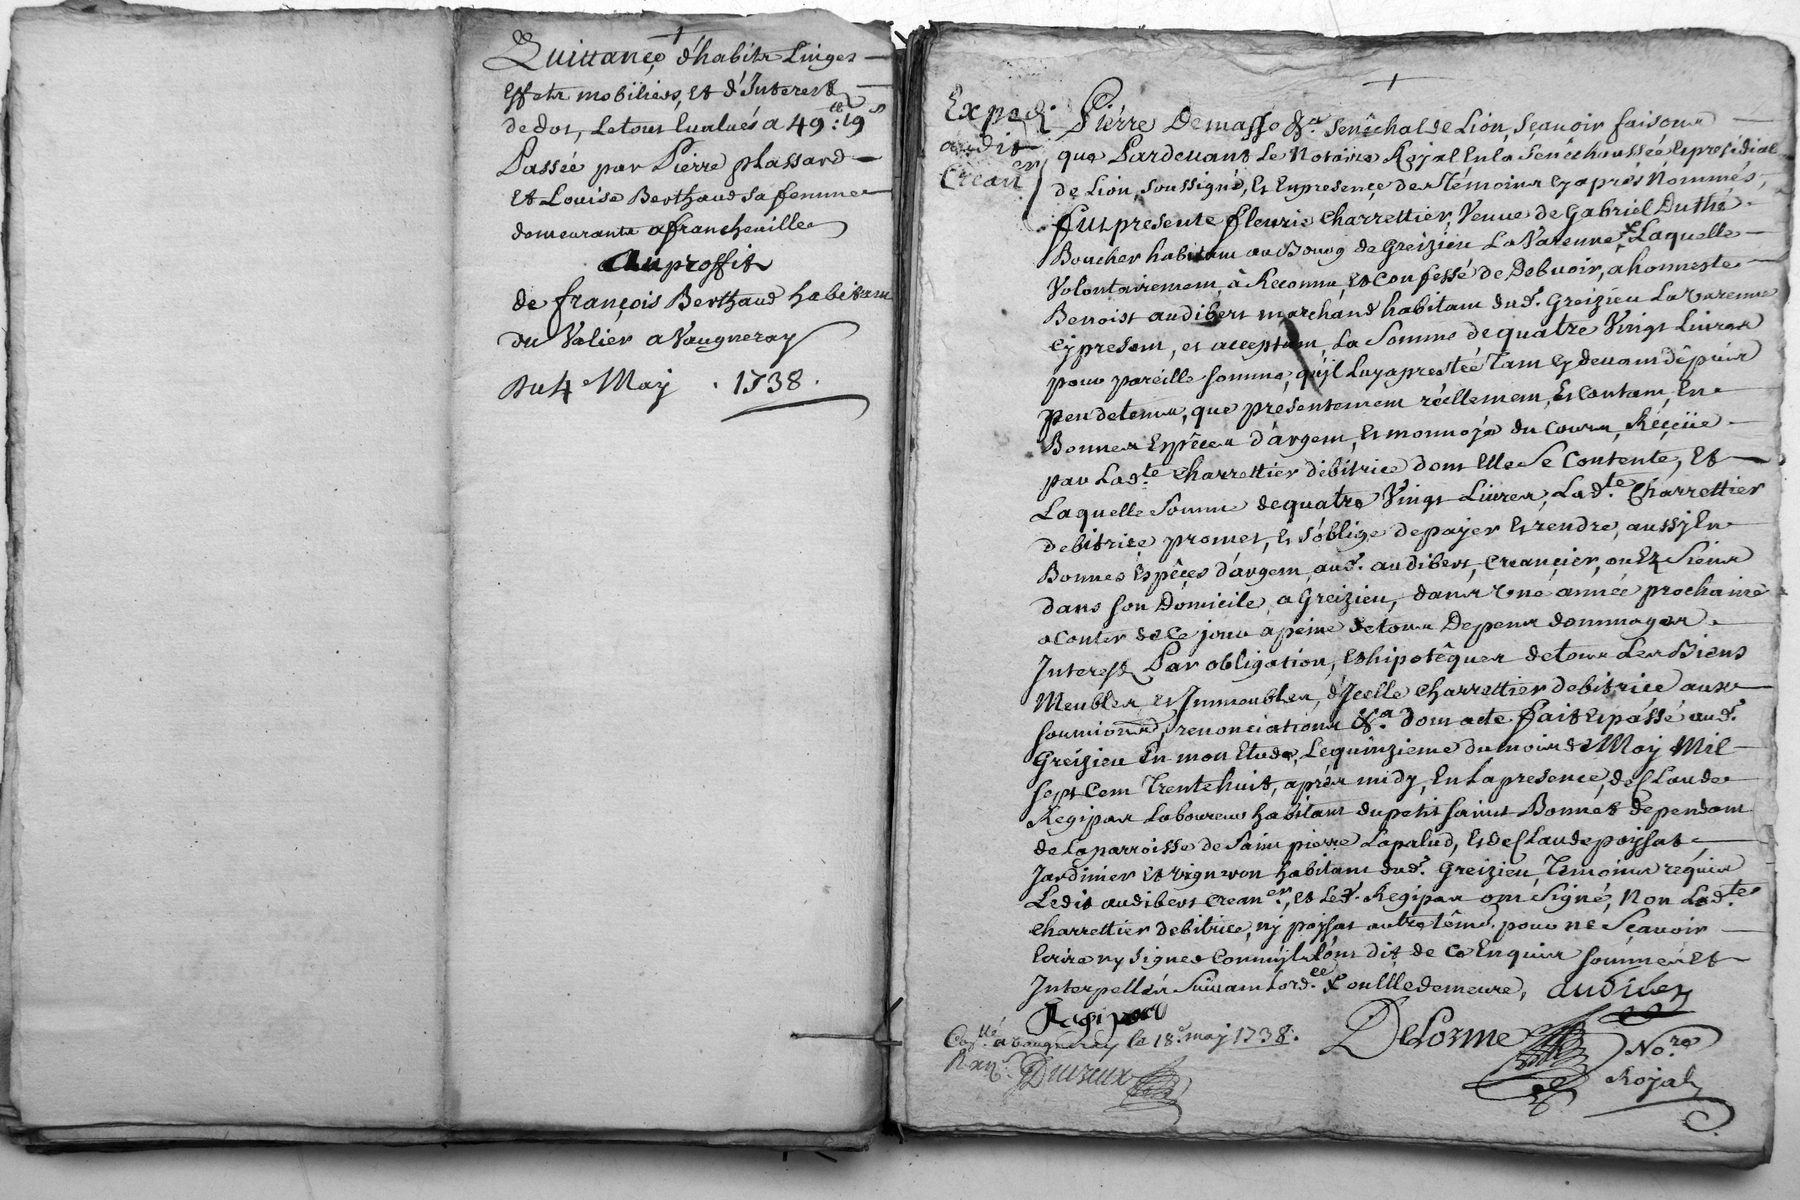 Quittance d'habits Linges
Effets mobiliers, et d'Interest
de dot, le tout Evalués a 49 tt : 19 s
Passée par Pierre plassard
et Louise Berthaud sa femme
demeurants a francheville
Au proffit
de françois Berthaud habitant
du Valier a Vaugneray
Du 4e May . 1738 .
Exped.
audit
crean er
Pierre Demasso &a. senéchal de Lion, sçavoir faisons
que Pardevant Le Notaire Royal En la Senéchaussée et presidial
de Lion soussigné, et En presence des Témoins cy apres Nommés,
fut presente fleurie charrettier, Veuve de Gabriel Duthi
Boucher habitant au Bourg de Greizieu La Varenne, Laquelle
Volontairement à Reconnu, et Confessé de Debvoir, a honneste
Benoist audibert marchand habitant dud. Greizieu La varenne
cy present, et acceptant, La Somme de quatre Vingt Livres
pour pareille somme, qu'il Luy a prestée Tant cy devant dépuis
peu de tems, que presentement réellement, et Contant, En
Bonnes Espêces d'argent, et monnoye du Cours, Réçeüe
par Lad.te Charrettier débitrice dont Elle Se Contente, Et
Laquelle Somme de quatre Vingt Livres, Lad.te Charrettier
debitrice promet, et s'oblige de payer et rendre, aussy En
Bonnes Espêçes d'argent, aud. audibert, Creançier, ou Ez Siens
dans son Domicile, a Greizieu, dans Une année prochaine
a Conter de Ce jour a peine de tous Depens dommages
Interest Par obligation, et hipotêques de tous Les Biens
Meubles, et Immeubles, d'Icelle charrettier debitrice aux
soumions, renonciations &a. dont acte fait et passé aud.
Greizieu En mon Etude, Le quinzieme du mois de May Mil
sept Cent Trente huit, après midy, En La presence, de Claude
Regipas Laboureur habitant du petit saint Bonnet dependant
de La parroisse de Saint pierre Lapalud, et de Claude poysat
Jardinier et vigneron habitant dud. Greizieu, Témoins requis
Ledit audibert crean er, et led. Regipas ont Signé, Non Lad.te
charrettier debitrice, ny poysat autre têm. pour ne Sçavoir
Ecrire ny signer Comm'ils l'ont dit de Ce Enquis sommés et
Interpellés Suivant L'ord.ce X ou Elle demeure, audibert
Regipas
Con.llé a vaugneray le 18e may 1738 .
DeLorme No.re
Royal